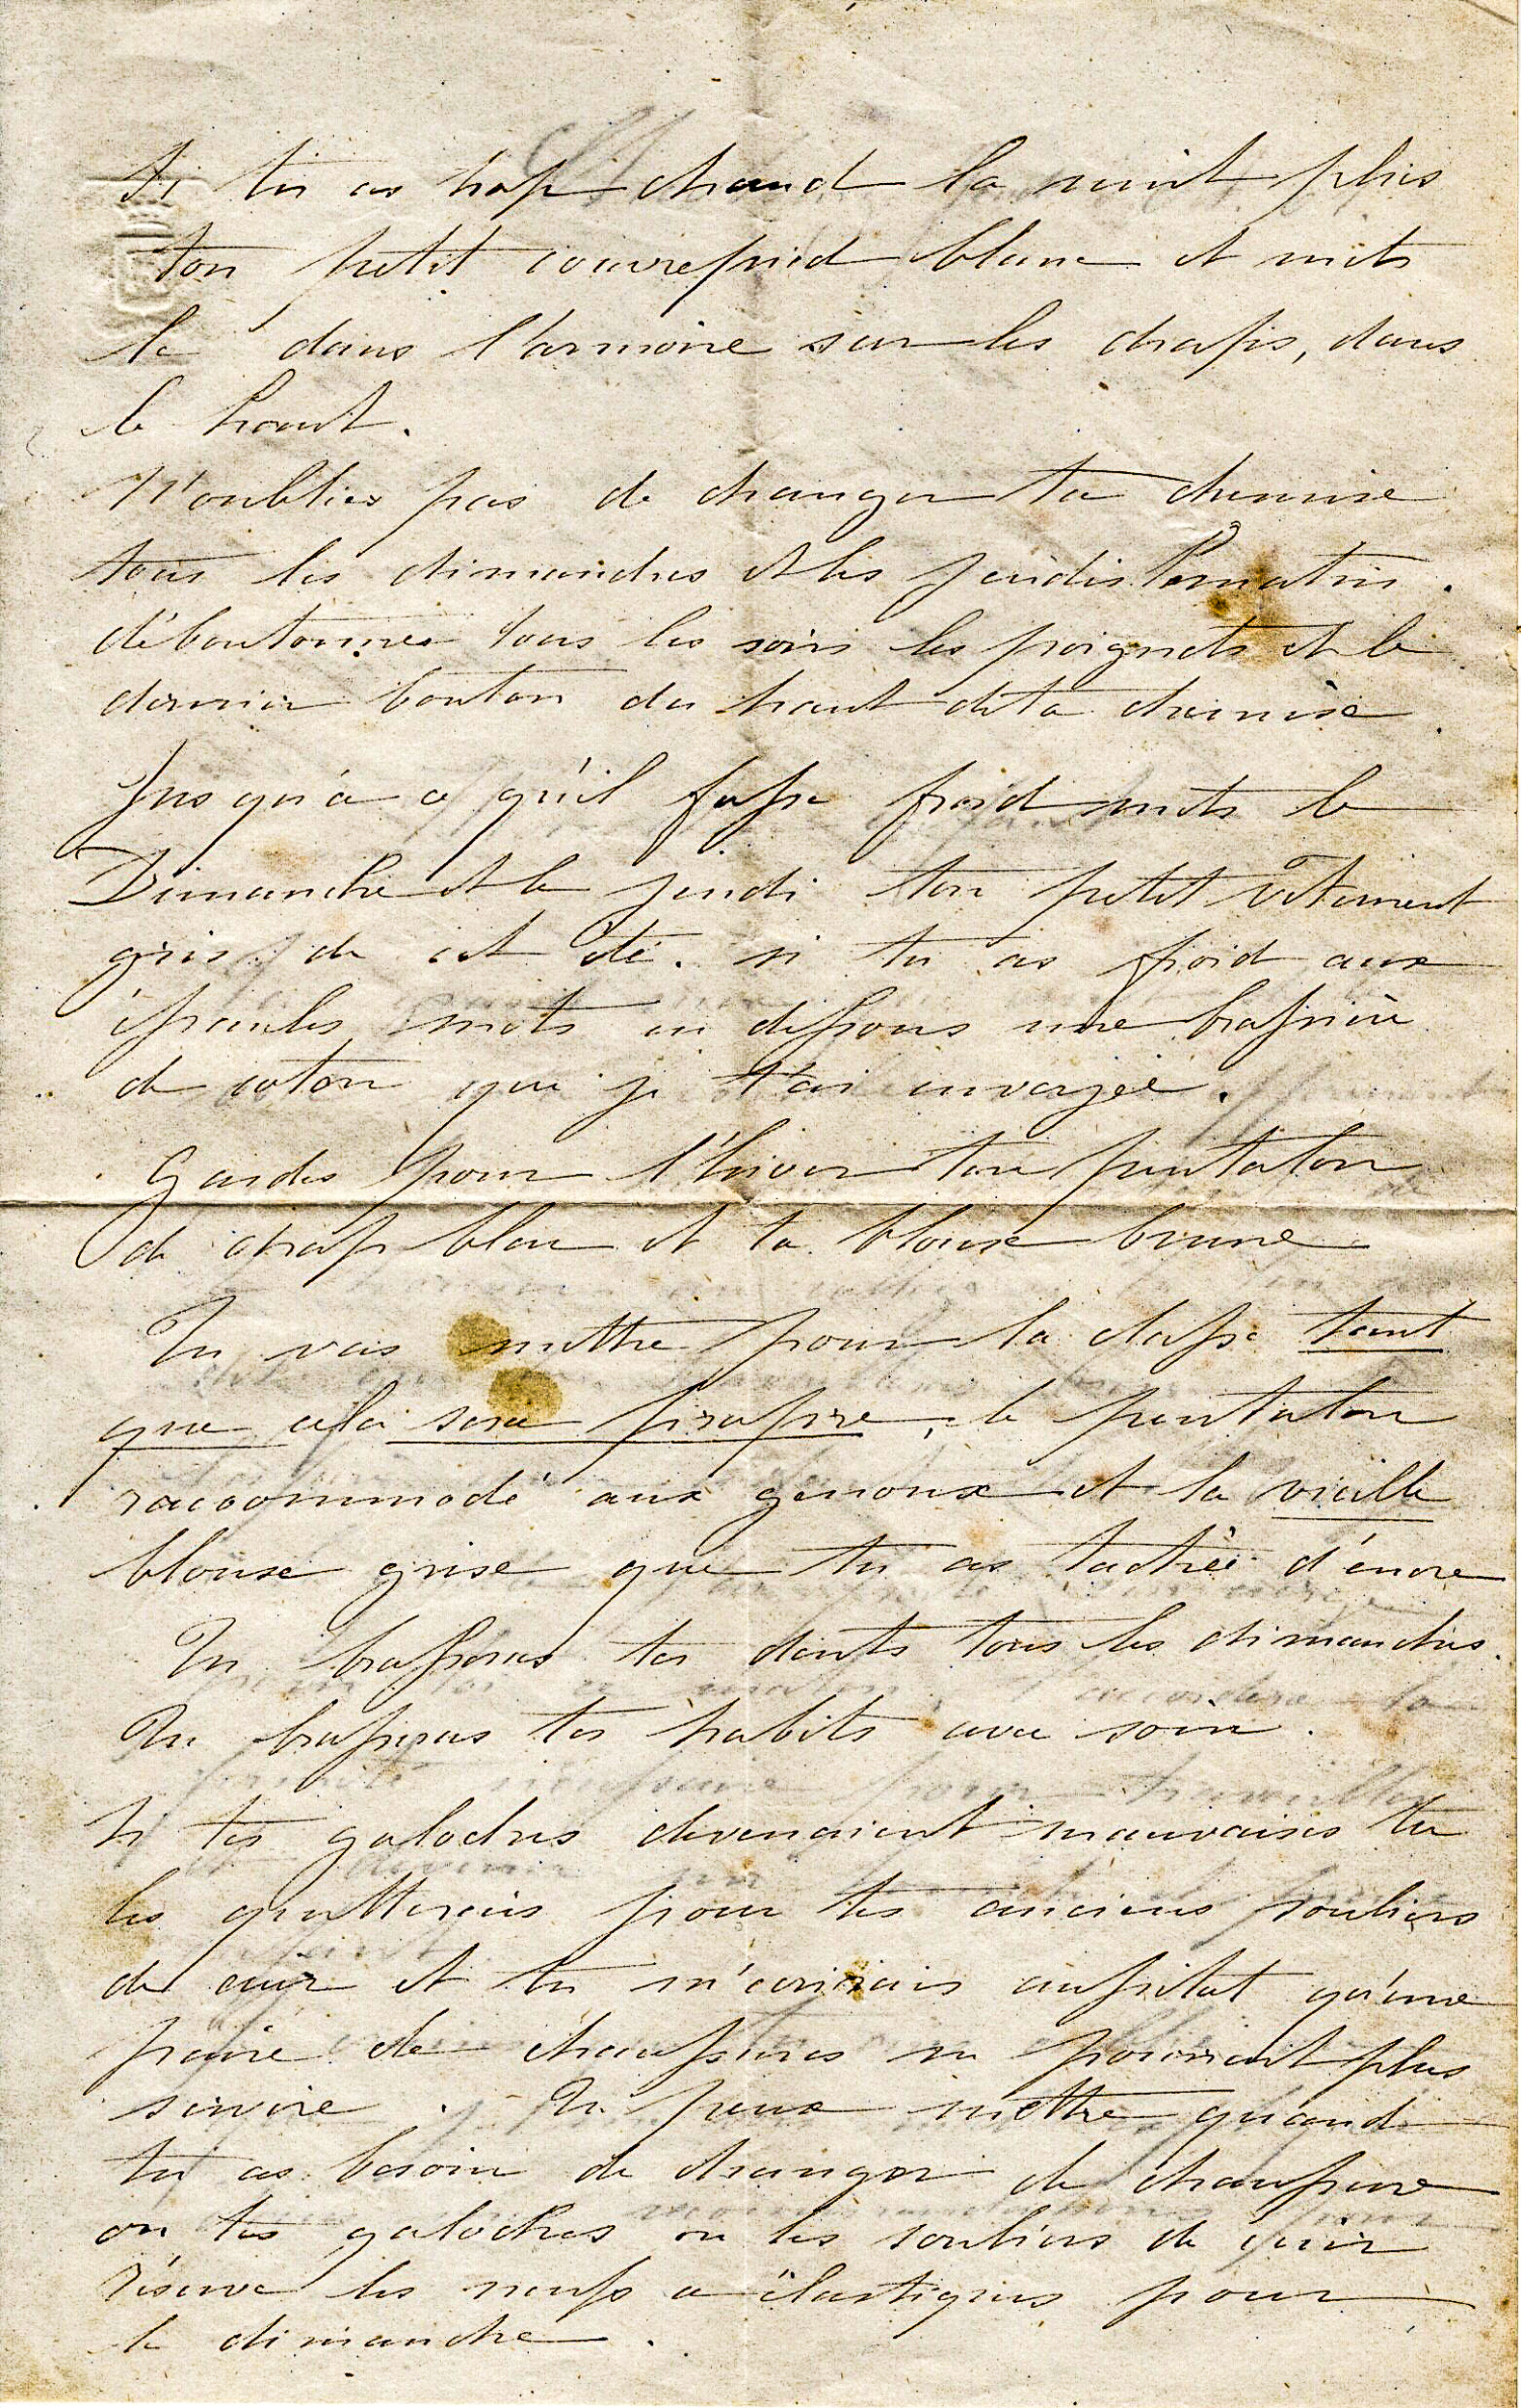 Si tu as trop chaud la nuit plies
ton petit couvrepied blanc et mets
le dans l'armoire sur les draps, dans
le haut.
N'oublies pas de changer ta chemise
tous les dimanches et les jeudis le matin.
déboutonnes tous les soirs les poignets et le
dernier bouton du haut de ta chemise.
Jusqu'à ce qu'il fasse froid mets le
Dimanche et le jeudi ton petit vêtement
gris de cet été. si tu as froid aux
épaules mets en dessous une brassière
de coton que je t'ai envoyée.
Gardes pour l'hiver ton pantalon
de drap bleu et ta blouse brune
Tu vas mettre pour la classe tant
que cela sera propre, le pantalon
raccommodé aux genoux et la vieille
blouse grise que tu as tachée d'encre
Tu brosseras tes dents tous les dimanches.
Tu brosseras tes habits avec soin.
Si tes galoches devenaient mauvaises tu
les quitterais pour tes anciens souliers
de cuir et tu m'écrirais aussitot qu'une
paire de chaussures ne pourrait plus
servire. Tu peux mettre quand
tu as besoin de changer de chaussure
ou tes galoches ou les souliers de cuir
réserve les neufs a élastiques pour
le dimanche.